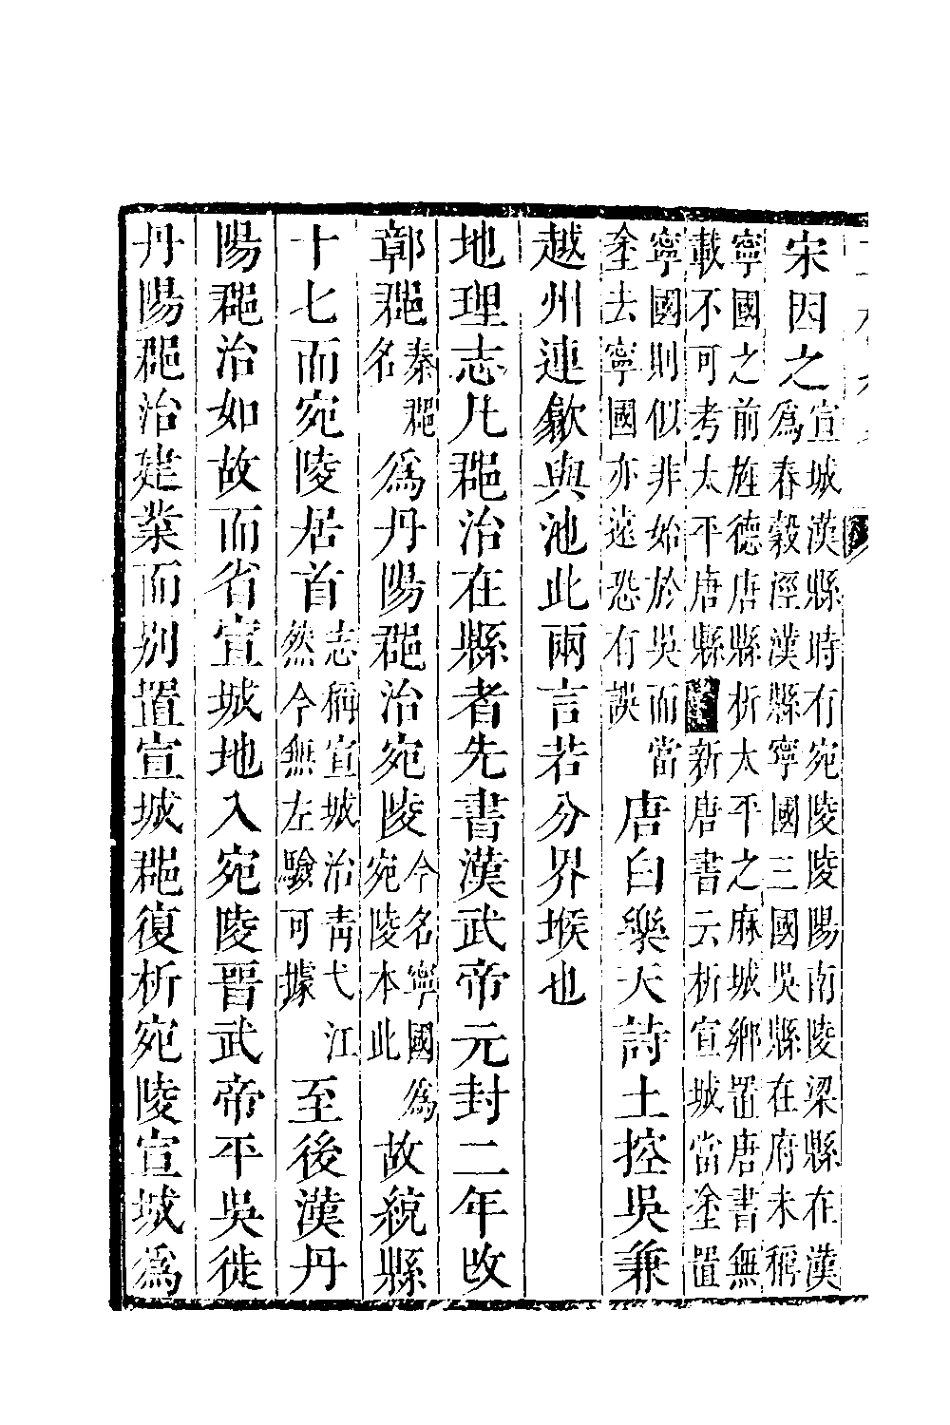 宋因之宣城漢縣時有宛陵陵陽南陵梁縣在漢爲春穀涇漢縣寧國三國吳縣在府未稱
寧國之前旌德唐縣析太平之麻城鄉置唐書無載不可考太平唐縣新唐書云析宣城當塗置
寧國則似非始於吳而當塗去寧國亦遠恐有誤唐白樂天詩土控吳兼
越州連歙與池此兩言若分界堠也
地理志凡郡治在縣者先書漢武帝元封二年改
鄣郡秦郡名爲丹陽郡治宛陵今名寧國爲宛陵本此故統縣
十七而宛陵居首志稱宣城治靑弋江然今無左驗可據至後漢丹
陽郡治如故而省宣城地入宛陵晉武帝平吳徙
丹陽郡治建業而别置宣城郡復析宛陵宣城爲